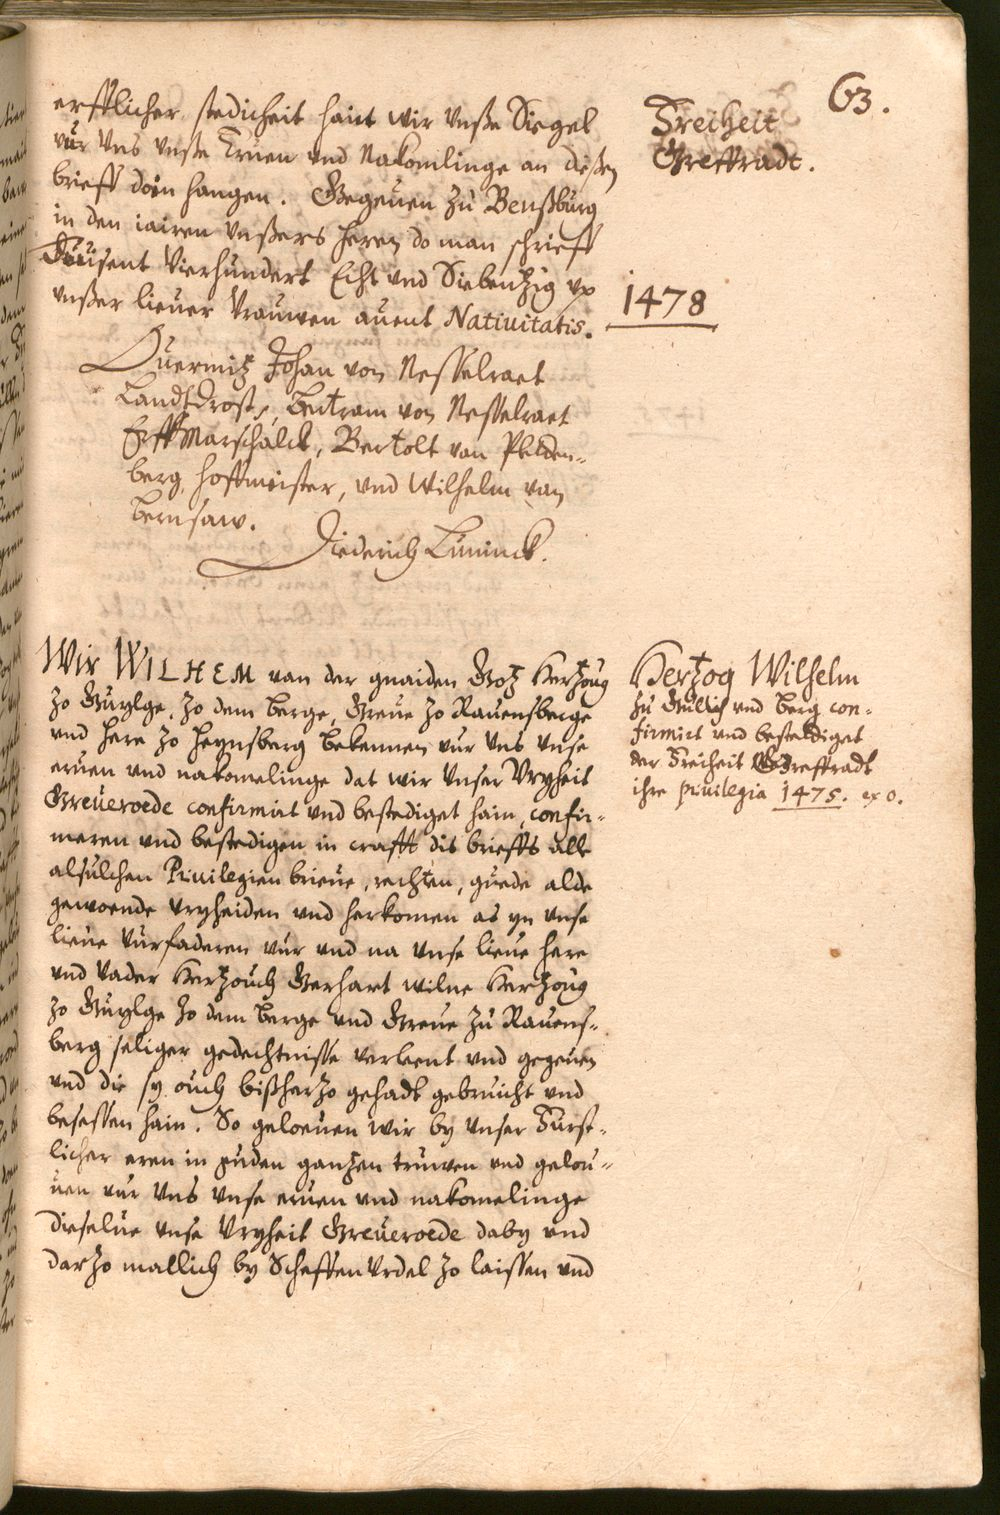 63.
Freiheit
Greffradt.
erfftlicher stedicheit haint wir vnße Siegel
vur Vns vnße Eruen vnd Nakomlinge an dießen
brieff doin hangen. Gegeuen zu Benßburg
in den iairen vnßers heren do man schrieff
Duisent Vierhundert Echt vnd Siebentzig vp
vnßer lieuer Vrauwen auent Natiuitatis.
1478
Ouermitz Johan von Nesselraet
Landtdrost, Bertram von Nesselraet
Erffmarschalck, Bertolt van Pletten-
berg hoffmeister, vnd Wilhelm van
Bernsaw.
Diederich Luninck.
Wir WILHEM van der gnaiden Gotz Hertzoug
zo Guylge, zo dem Berge, Greue zo Rauensberge
vnd here zo Heynsberg bekennen vur Vns Vnse
eruen vnd nakomelinge dat wir vnser Vryheit
Greueroede confirmirt vnd bestediget hain, confir-
meren vnd bestedigen in crafft dis brieffs alle
alsulchen Priuilegien brieue, rechten, guede alde
gewoende vryheiden vnd herkomen as yn vnse
lieue Vurfaderen vur vnd na vnse lieue here
vnd Vader Hertzouch Gerhart wilne Hertzoug
zo Guylge zo dem Berge vnd Greue zu Rauens-
berg seliger gedechtnisse verleent vnd gegeuen
vnd die sy ouch bißherzo gehadt gebruicht vnd
besessen hain. So geloeuen wir by vnser Furst-
licher eren in guden gantzen truwen vnd gelou-
uen vur Vns vnse eruen vnd nakomelinge
dieselue vnse Vryheit Greueroede daby vnd
darzo mallich by Scheffen Vrdel zo laissen vnd
Hertzog Wilhelm
zu Gulich vnd Berg con-
firmirt vnd bestediget
der Freiheit Greffradt
ihre priuilegia 1475. ex o.